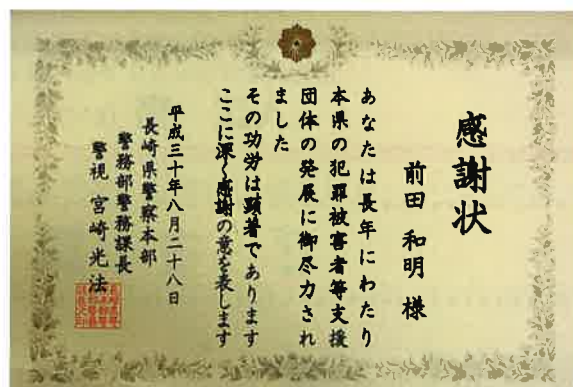 感謝状
前田 和明 様
あなたは長年にわたり
本県の犯罪被害者等支援
団体の発展に御尽力され
ました
その功労は顕著であります
ここに深く感謝の意を表します
平成三十年八月二十八日
長崎県警察本部
警務部警務課長
警視 宮崎光法